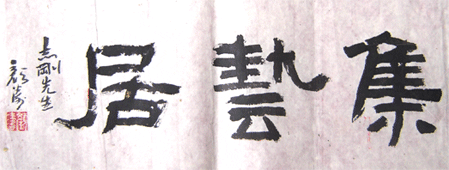 集藝居
志剛先生